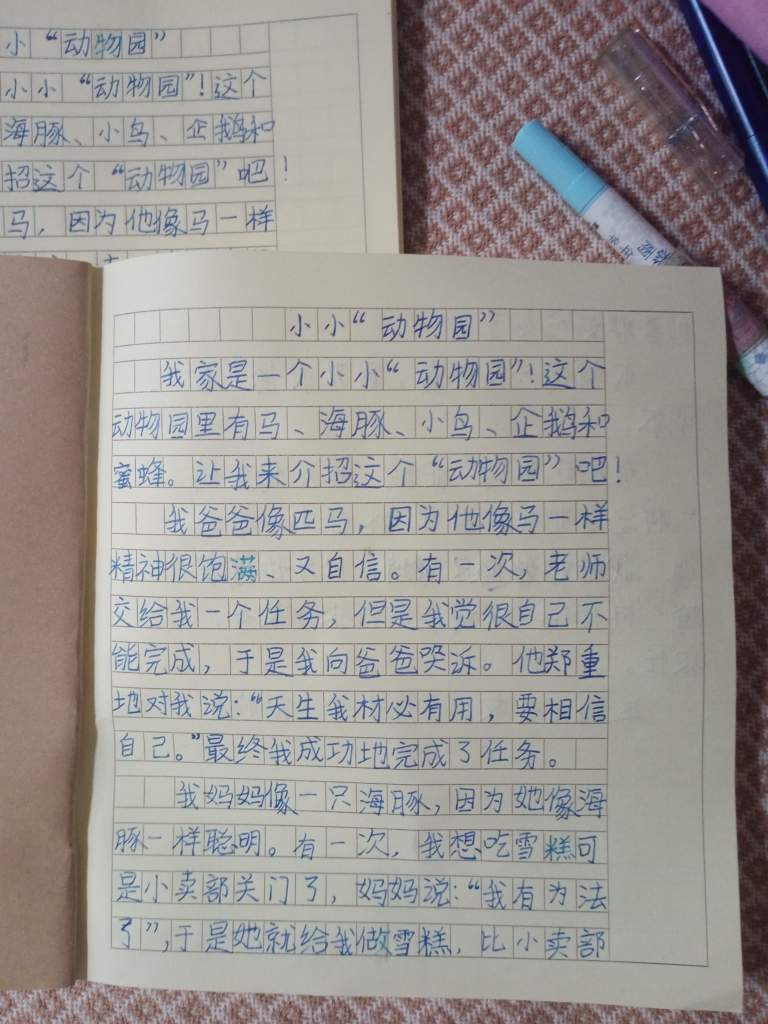 小“动物园”
小小“动物园”！这个
海豚、小鸟、企鹅和
招这个“动物园”吧！
马，因为他像马一样
小小“动物园”
我家是一个小小“动物园”！这个
动物园里有马、海豚、小鸟、企鹅和
蜜蜂。让我来介招这个“动物园”吧！
我爸爸像匹马，因为他像马一样
精神很饱满、又自信。有一次，老师
交给我一个任务，但是我觉很自己不
能完成，于是我向爸爸哭诉。他郑重
地对我说：“天生我材必有用，要相信
自己。”最终我成功地完成了任务。
我妈妈像一只海豚，因为她像海
豚一样聪明。有一次，我想吃雪糕可
是小卖部关门了，妈妈说：“我有为法
了”，于是她就给我做雪糕，比小卖部